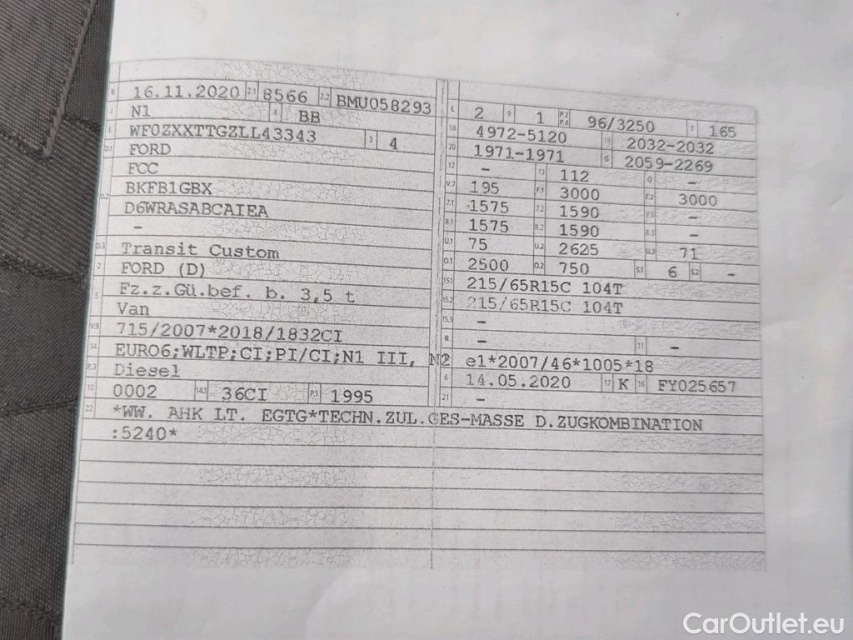 B 16.11.2020 2.1 8566 2.2 BMU058293
J N1 4 BB
E WF0ZXXTTGZLL43343 3 4
D.1 FORD
FCC
D.2 BKFB1GBX
D6WRASABCAIEA
-
D.3 Transit Custom
2 FORD (D)
5 Fz.z.Gü.bef. b. 3,5 t
Van
V.9 715/2007*2018/1832CI
14 EURO6;WLTP;CI;PI/CI;N1 III, N2
P.3 Diesel
10 0002 14.1 36CI P.1 1995
22 *WW. AHK LT. EGTG*TECHN.ZUL.GES-MASSE D.ZUGKOMBINATION
:5240*
L 2 9 1 P.2 P.4 96/3250 T 165
18 4972-5120 19 2032-2032
20 1971-1971 G 2059-2269
12 - 13 112 Q -
V.7 195 F.1 3000 F.2 3000
7.1 1575 7.2 1590 7.3 -
8.1 1575 8.2 1590 8.3 -
U.1 75 U.2 2625 U.3 71
O.1 2500 O.2 750 S.1 6 S.2 -
15.1 215/65R15C 104T
15.2 215/65R15C 104T
15.3 -
R - 11 -
K e1*2007/46*1005*18
6 14.05.2020 17 K 16 FY025657
21 -
CarOutlet.eu